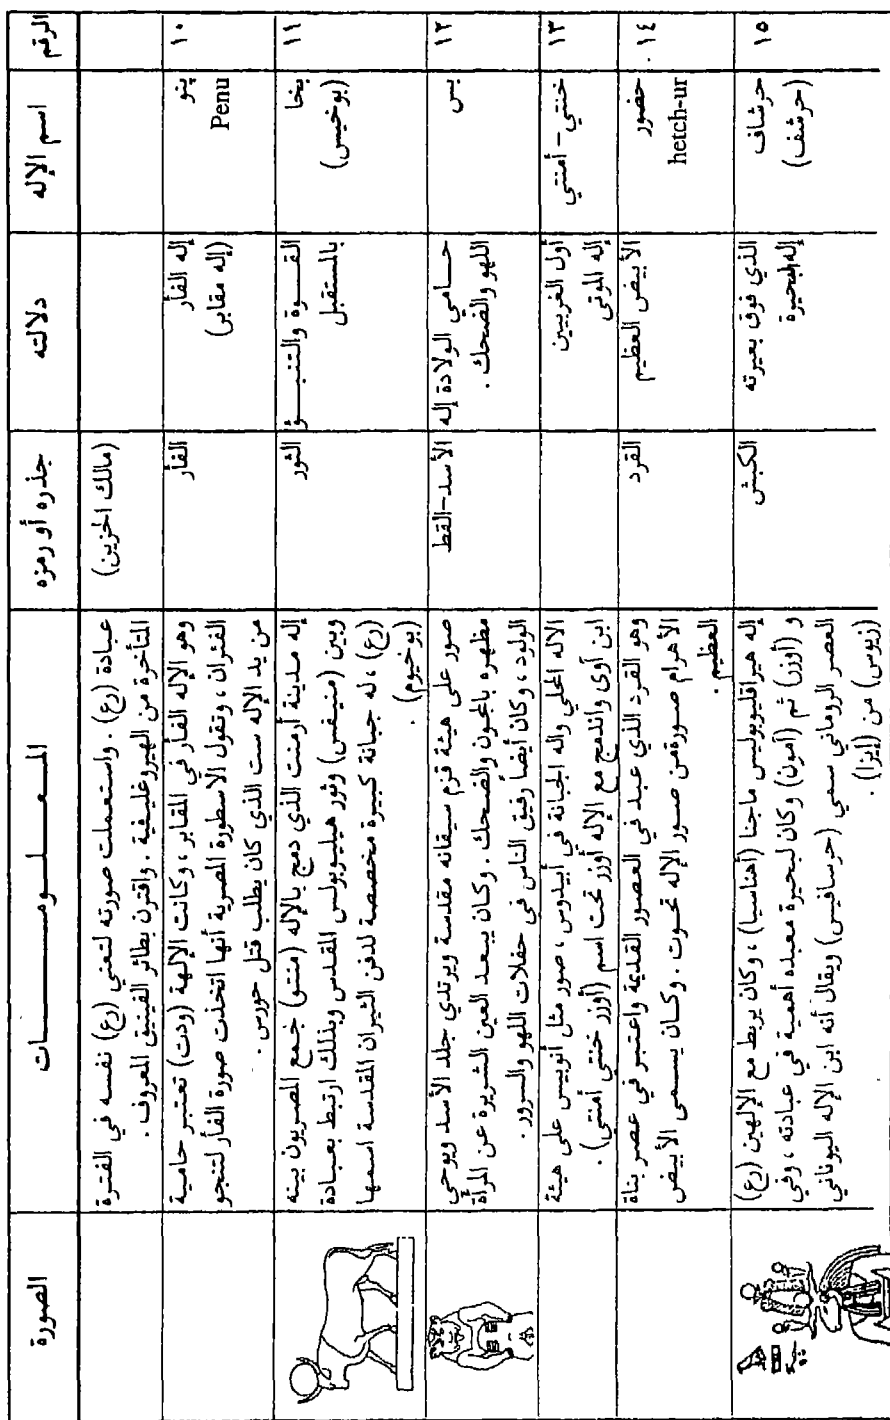 الرقم
اسم الإله
دلالته
جذره أو رمزه
المعلومات
الصورة
(مالك الحزين)
عبادة (رع). واستعملت صورته لتعني (رع) نفسه في الفترة
المتأخرة من الهيروغليفية. واقترن بطائر الفينيق المعروف.
١٠
پنو
Penu
إله الفأر
(إله مقابر)
الفأر
وهو الإله الفأر في المقابر، وكانت الإلهة (ودت) تعتبر حامية
الفئران، وتقول الاسطورة المصرية أنها اتخذت صورة الفأر لتنجو
من يد الإله ست الذي كان يطلب قتل حورس.
١١
بخا
(بوخيس)
القوة والتنبؤ
بالمستقبل
الثور
إله مدينة أرمنت الذي دمج بالإله (منتو) جمع المصريون بينه
وبين (منيفس) وثور هيليوبولس المقدس وبذلك ارتبط بعبادة
(رع)، له جبانة كبيرة مخصصة لدفن الثيران المقدسة اسمها
(بوخيوم).
١٢
بس
حامي الولادة إله
اللهو والضحك.
الأسد-القط
صور على هيئة قزم سيقانه مقدسة ويرتدي جلد الأسد ويوحي
مظهره بالمجون والضحك. وكان يبعد العين الشريرة عن المرأة
الولود، وكان أيضاً رفيق الناس في حفلات اللهو والسرور.
١٣
خنتي - أمنتي
أول الغربيين
إله الموتى
الاله المحلي واله الجبانة في أبيدوس، صور مثل أنوبيس على هيئة
ابن آوى واندمج مع الإله أوزر تحت اسم (أوزر خنتي أمنتي).
١٤
حضور
hetch-ur
الأبيض العظيم
القرد
وهو القرد الذي عبد في العصور القديمة واعتبر في عصر بناة
الأهرام صورة من صور الإله تحوت. وكان يسمى الأبيض
العظيم.
١٥
حرشاف
(حرشف)
الذي فوق بعيرته
إله البحيرة
الكبش
إله هيراقليوبوليس ماجنا (أهناسيا)، وكان يربط مع الإلهين (رع)
و (أوزر) ثم (آمون) وكان لبحيرة معبده أهمية في عبادته، وفي
العصر الروماني سمي (حرسافيس) ويقال أنه ابن الإله اليوناني
(زيوس) من (إيزا).